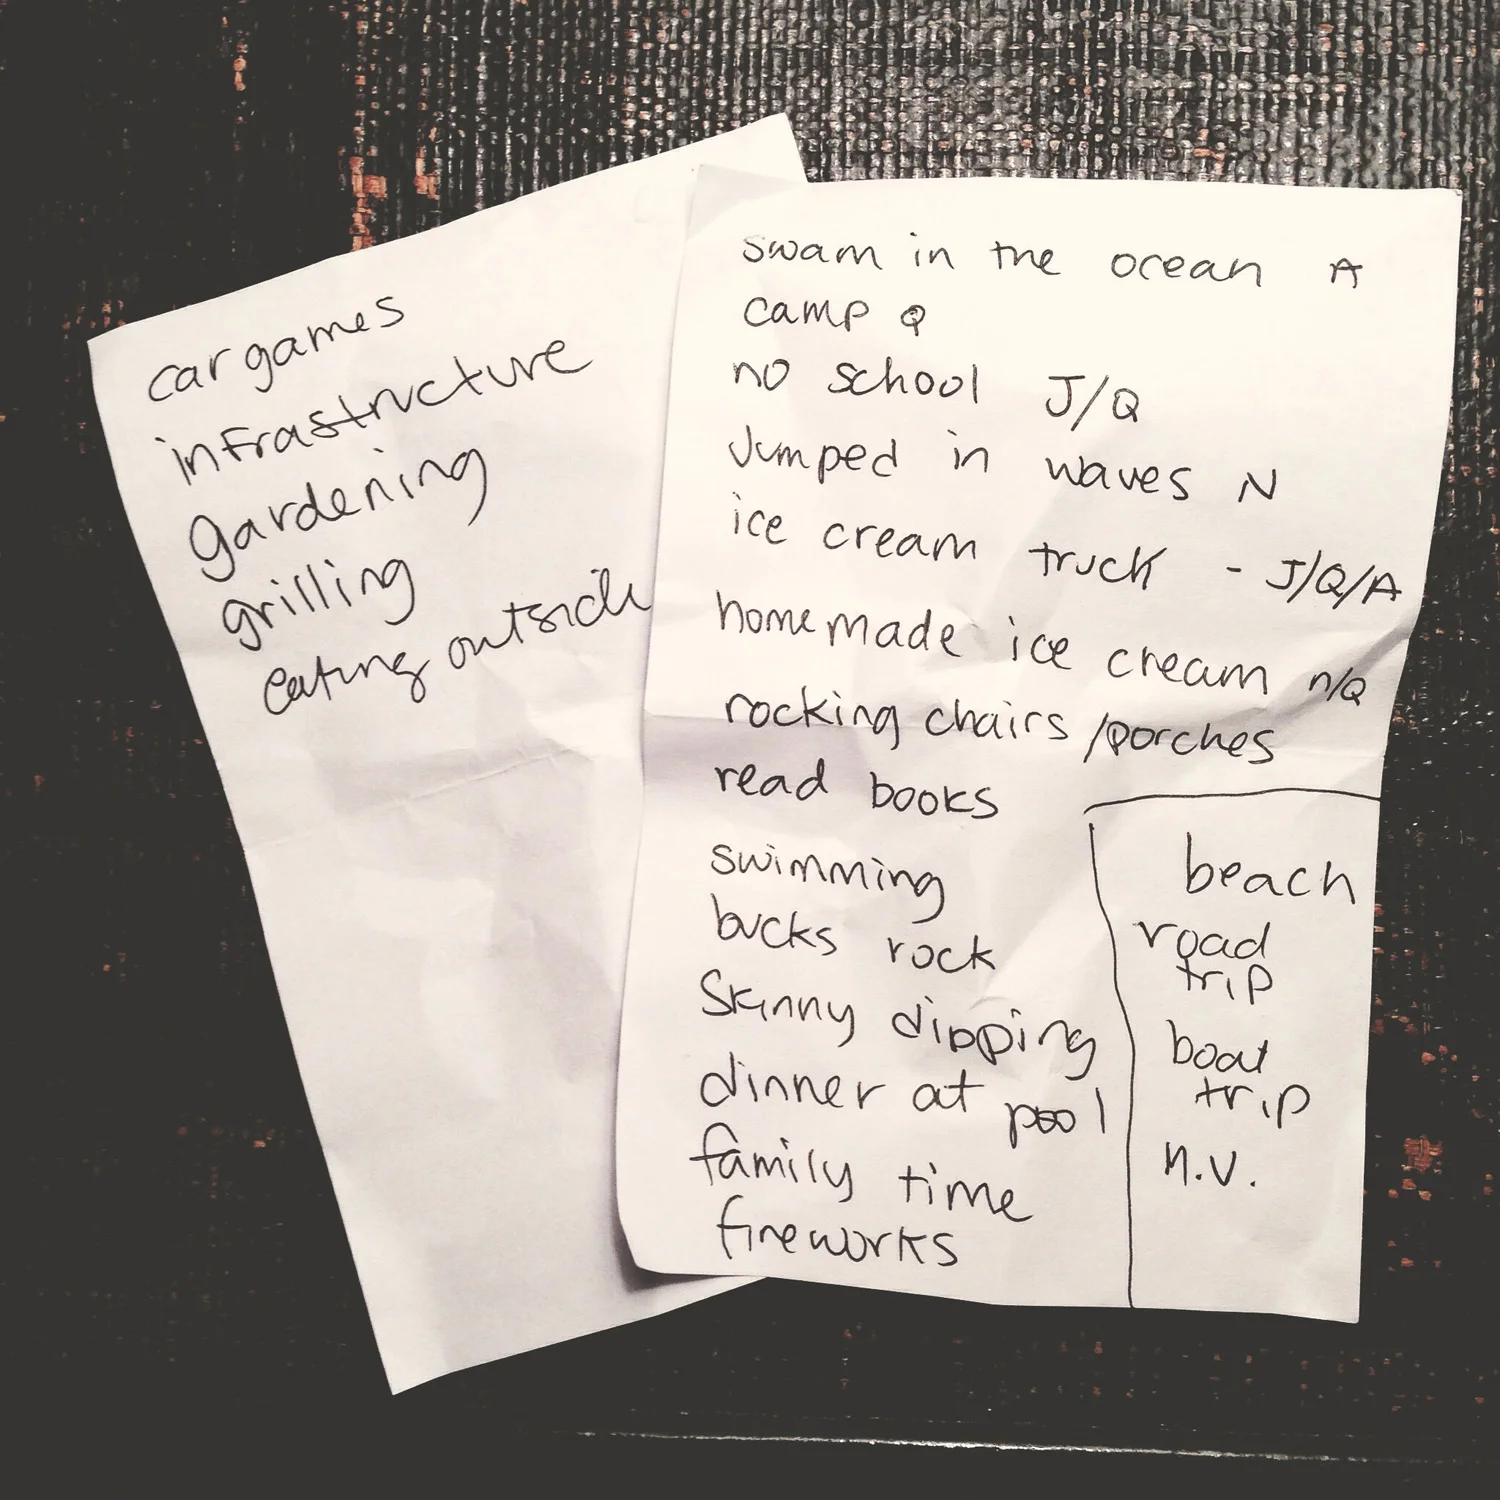 car games
infrastructure
gardening
grilling
eating outside
swam in the ocean A
camp Q
no school J/Q
Jumped in waves N
ice cream truck - J/Q/A
homemade ice cream n/Q
rocking chairs /porches
read books
swimming
bucks rock
Skinny dipping
dinner at pool
family time
fireworks
beach
road
trip
boat
trip
n.v.